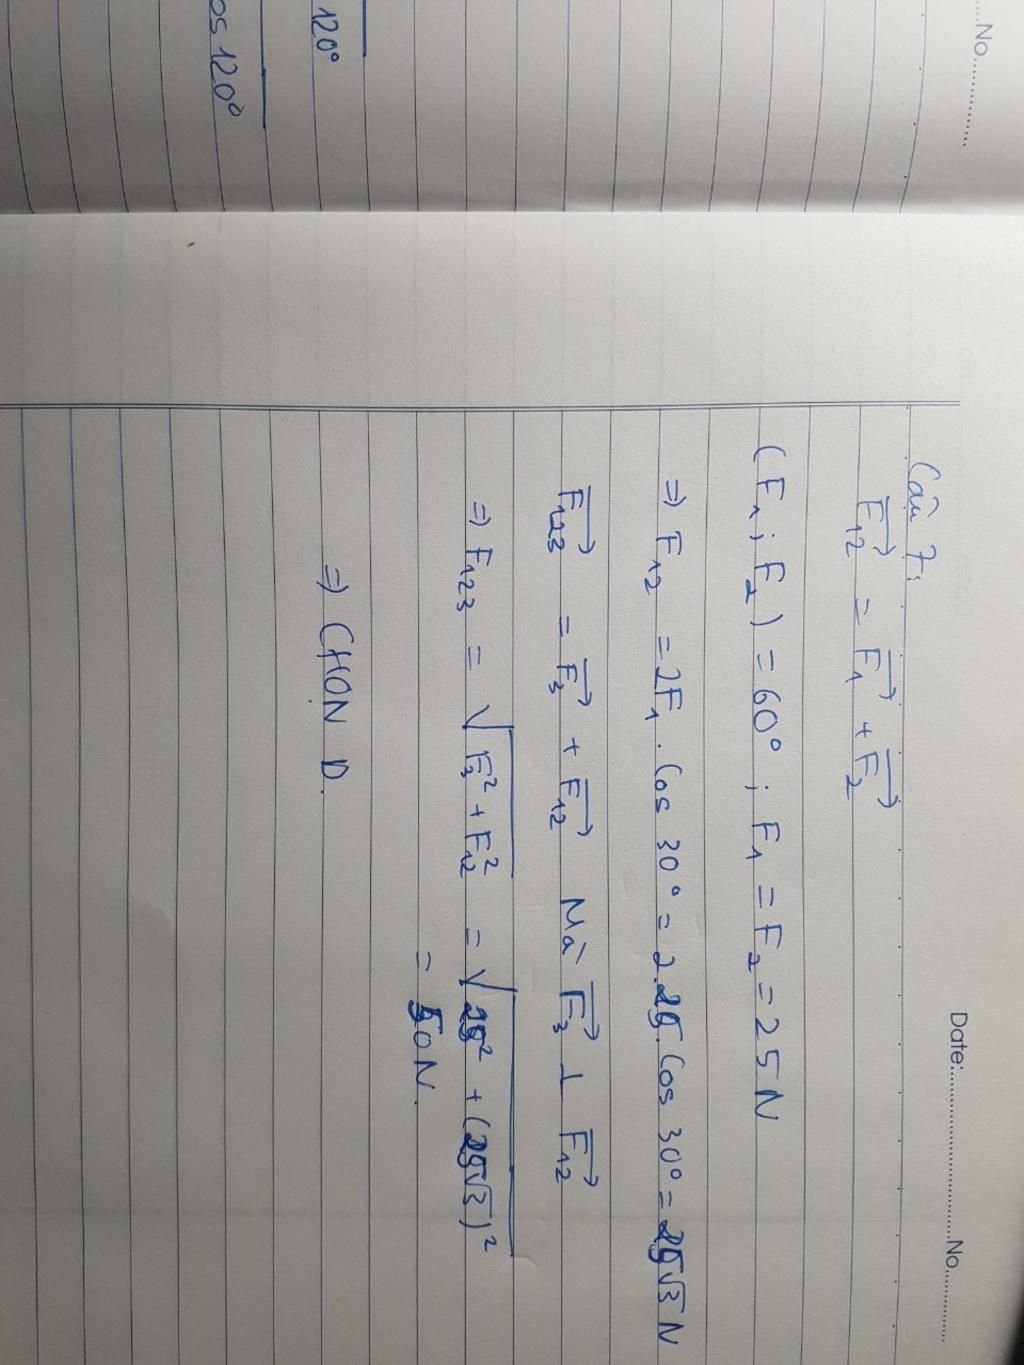 No.............
120°
os 120°
Date:..............................No..............
Câu 7:
F₁₂ = F₁ + F₂
(F₁ ; F₂) = 60° ; F₁ = F₂ = 25 N
⇒ F₁₂ = 2F₁ . Cos 30° = 2.25.Cos 30° = 25√3 N
F₁₂₃ = F₃ + F₁₂ Mà F₃ ⊥ F₁₂
⇒ F₁₂₃ = √F₃² + F₁₂² = √25² + (25√3)²
= 50N.
⇒ CHỌN D.